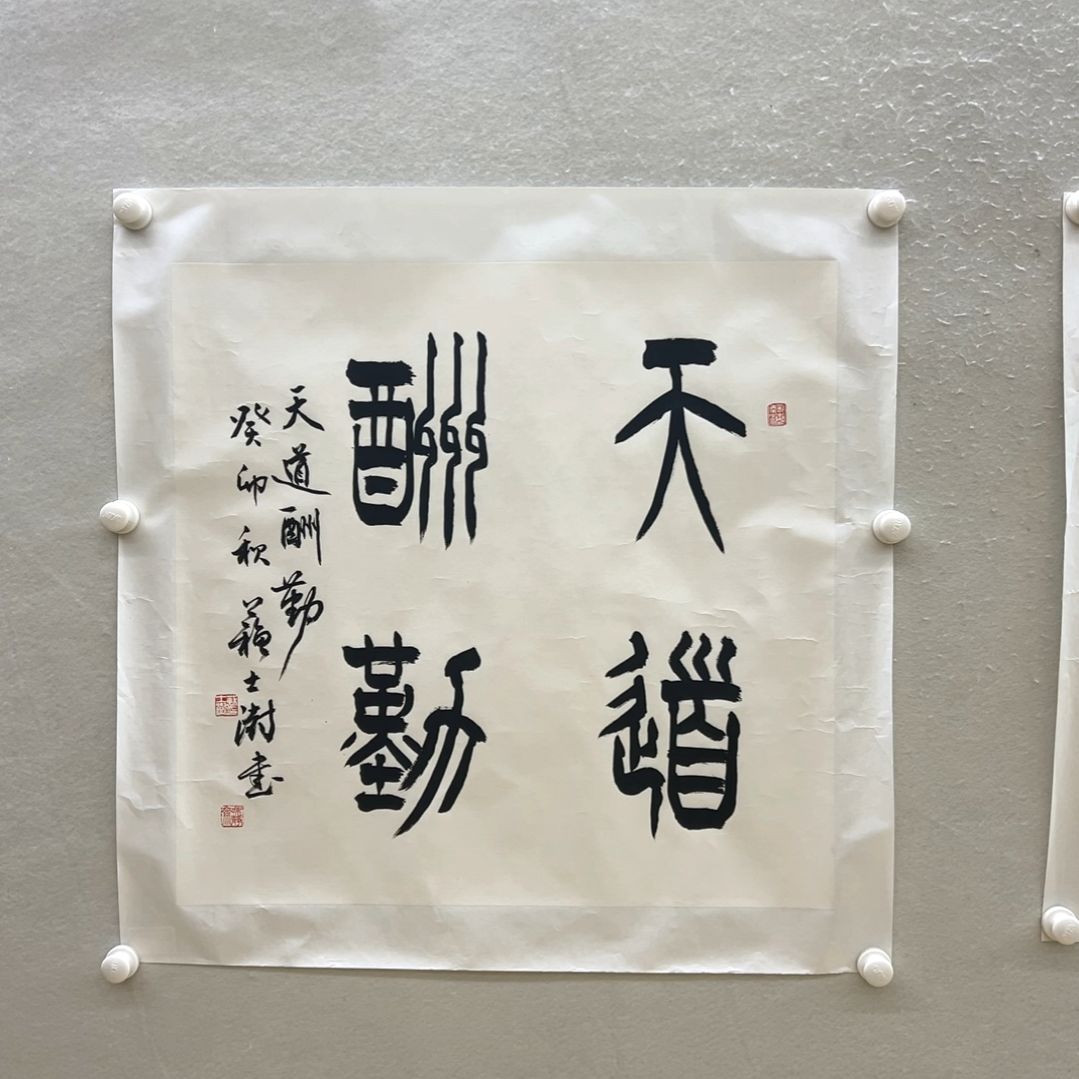 天道
酬勤
天道酬勤
癸卯秋蘇士澍書